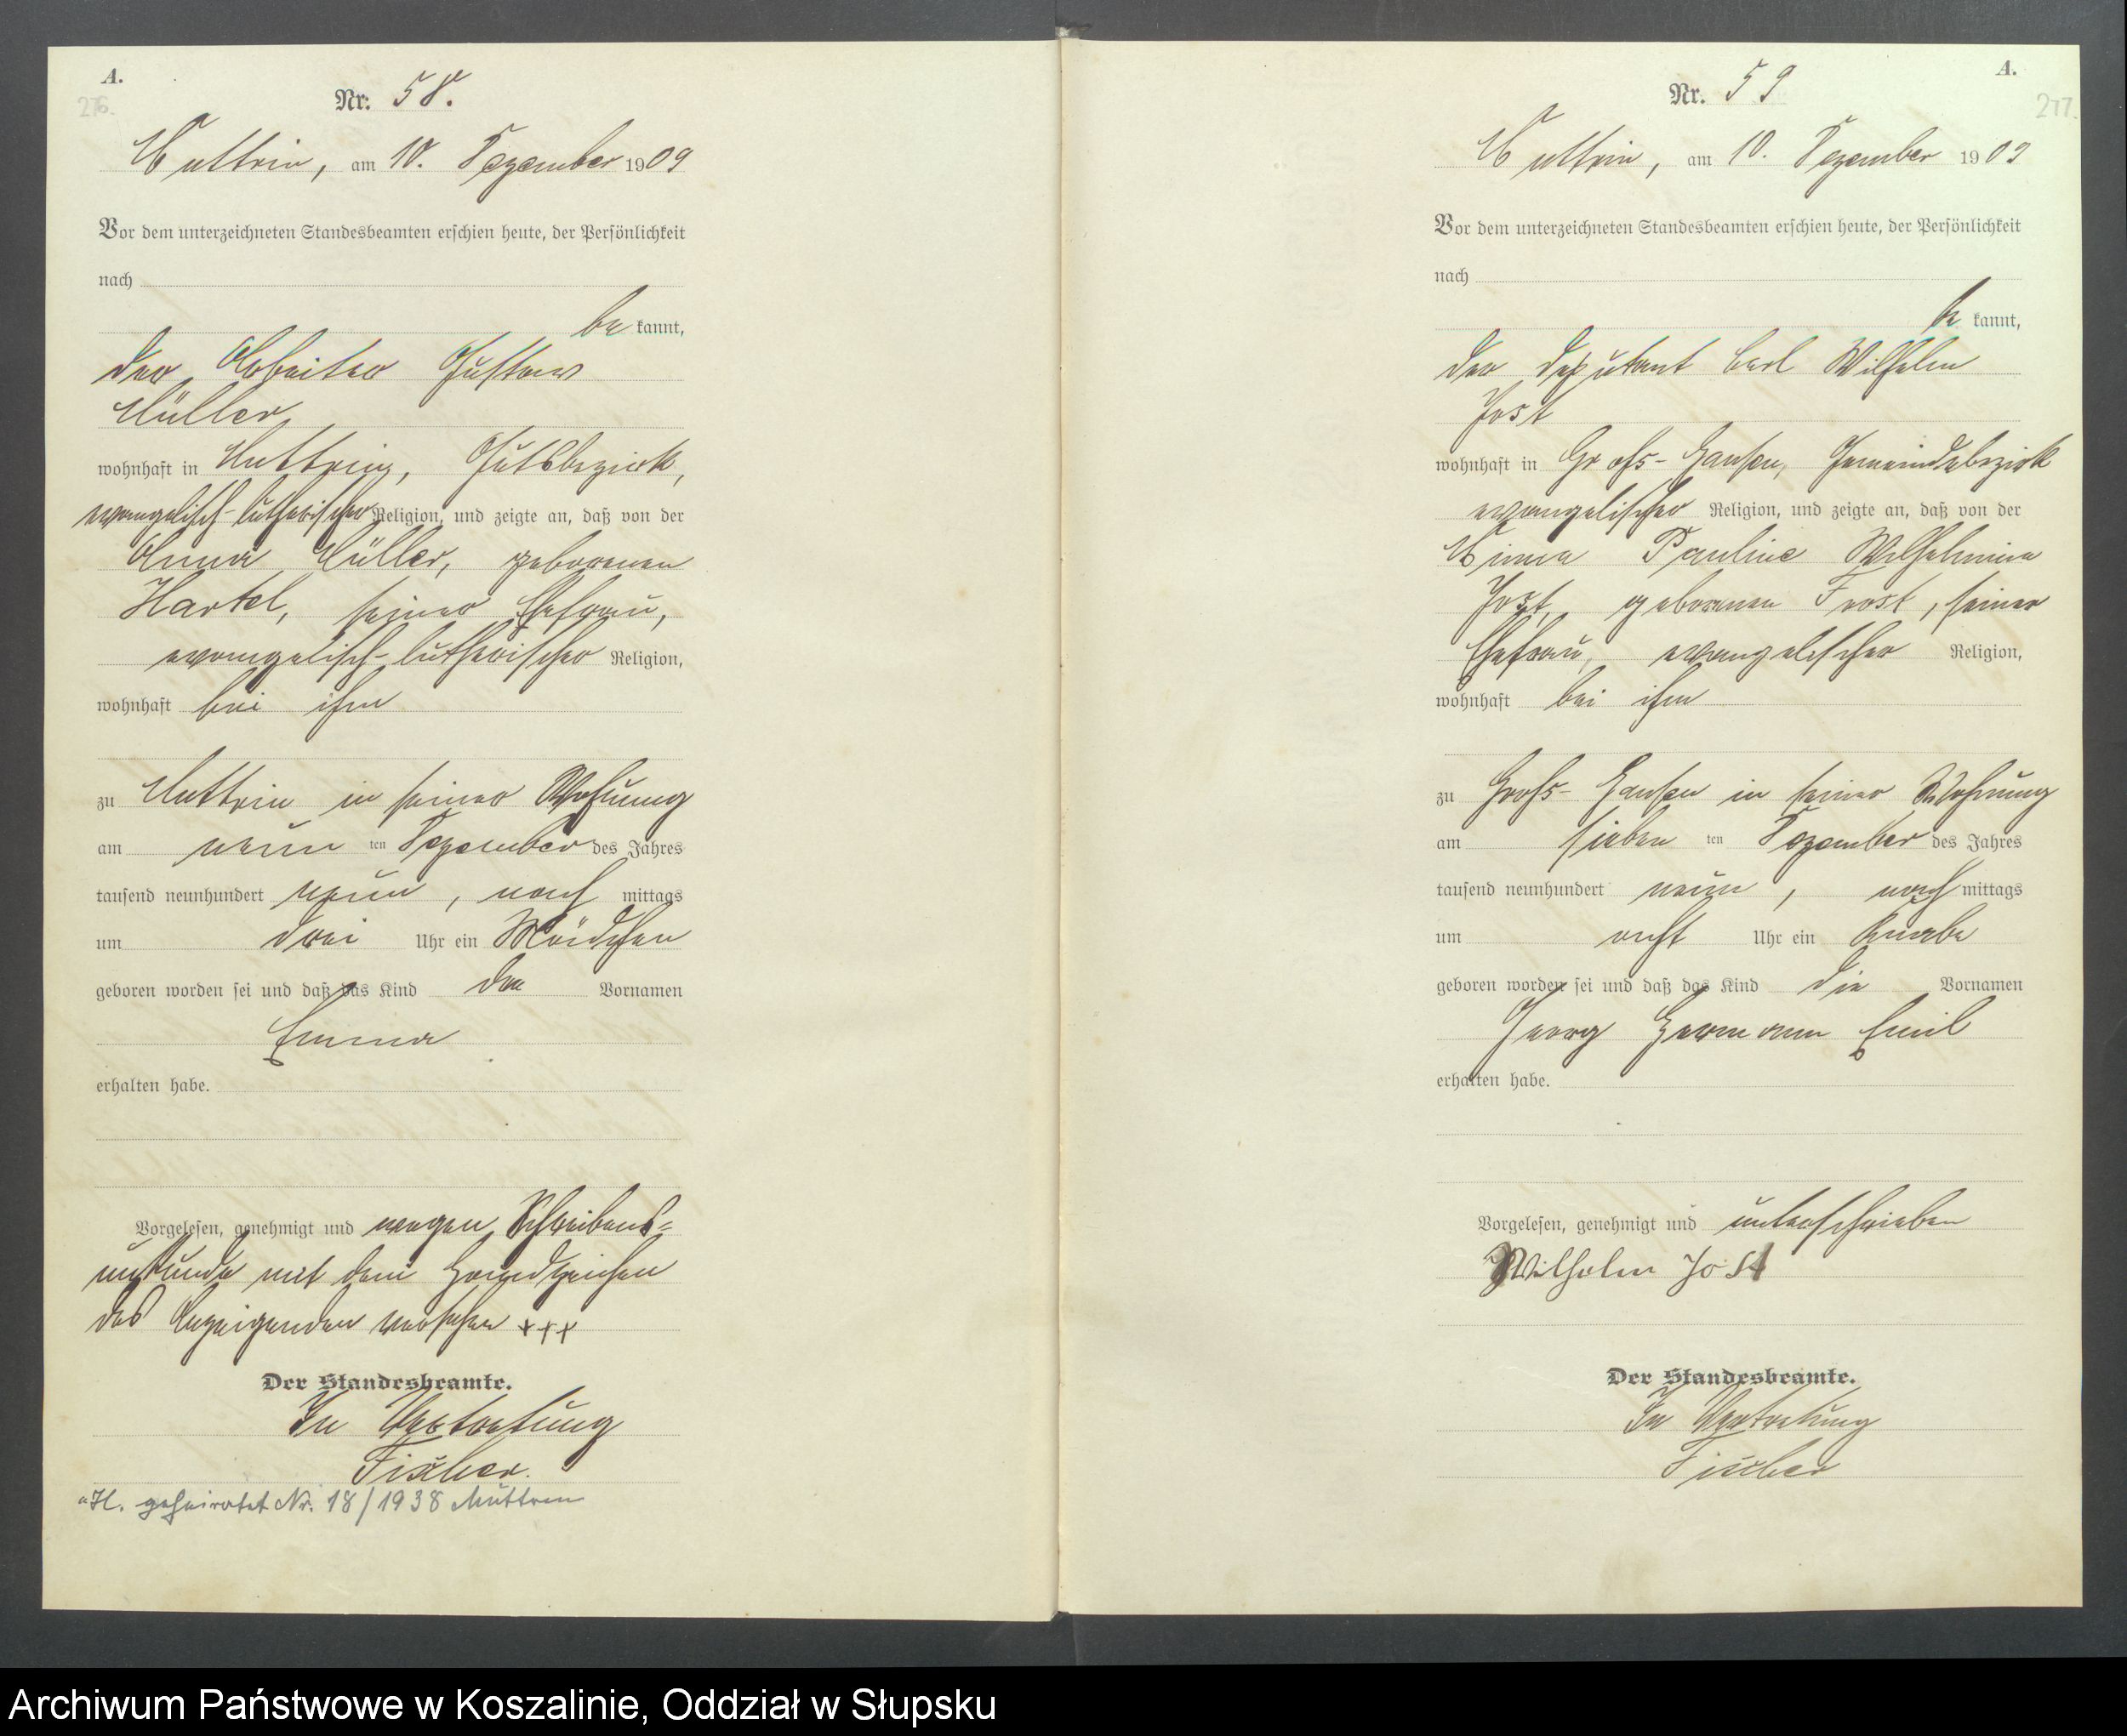 A.
276.
Nr. 58.
Muttrin, am 10. Dezember 1909
Vor dem unterzeichneten Standesbeamten erschien heute, der Persönlichkeit
nach
be kannt,
der Arbeiter Gustav
Müller
wohnhaft in Muttrin, Gutsbezirk,
evangelisch-lutherischer Religion, und zeigte an, daß von der
Anna Müller, geborenen
Hartel, seiner Ehefrau,
evangelisch-lutherischer Religion,
wohnhaft bei ihm
zu Muttrin in seiner Wohnung
am neun ten Dezember des Jahres
tausend neunhundert neun, nach mittags
um drei Uhr ein Mädchen
geboren worden sei und daß das Kind den Vornamen
Emma
erhalten habe.
Vorgelesen, genehmigt und wegen Schreibens-
unkunde mit dem Handzeichen
des Anzeigenden versehen +++
Der Standesbeamte.
In Vertretung
Fischer.
geheiratet Nr. 18/1938 Muttrin
A.
277.
Nr. 59
Muttrin, am 10. Dezember 1909
Vor dem unterzeichneten Standesbeamten erschien heute, der Persönlichkeit
nach
be kannt,
der Deputant Carl Wilhelm
Jost
wohnhaft in Groß-Gansen, Gemeindebezirk
evangelischer Religion, und zeigte an, daß von der
Minna Pauline Wilhelmine
Jost, geborenen Frost, seiner
Ehefrau, evangelischer Religion,
wohnhaft bei ihm
zu Groß-Gansen in seiner Wohnung
am sieben ten Dezember des Jahres
tausend neunhundert neun, nach mittags
um acht Uhr ein Knabe
geboren worden sei und daß das Kind die Vornamen
Georg Hermann Emil
erhalten habe.
Vorgelesen, genehmigt und unterschrieben
Wilhelm Jost
Der Standesbeamte.
In Vertretung
Fischer
Archiwum Państwowe w Koszalinie, Oddział w Słupsku